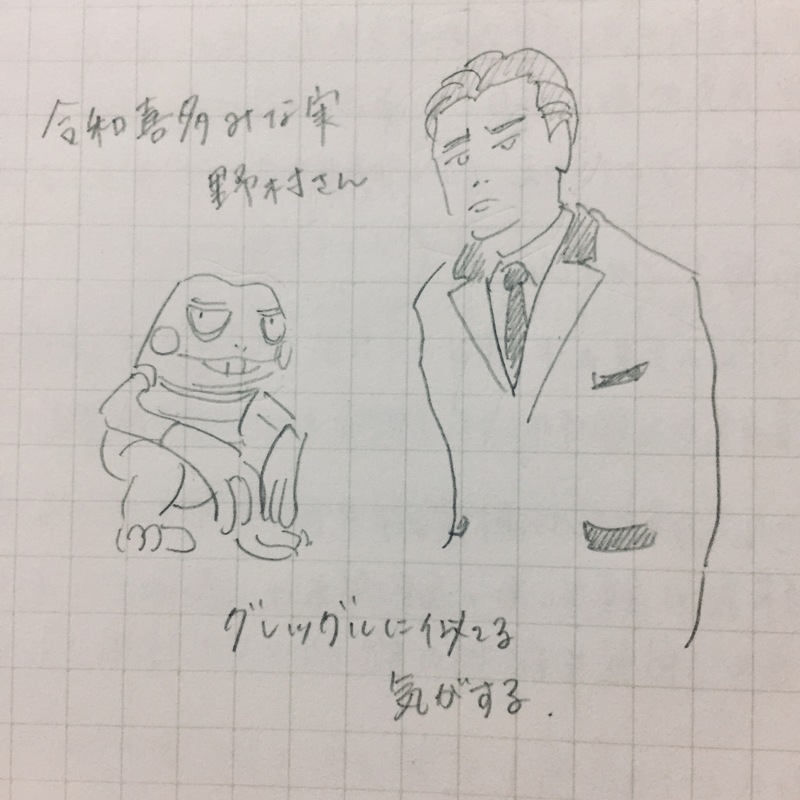 令和喜多みな実
野村さん
グレッグルに似てる
気がする.